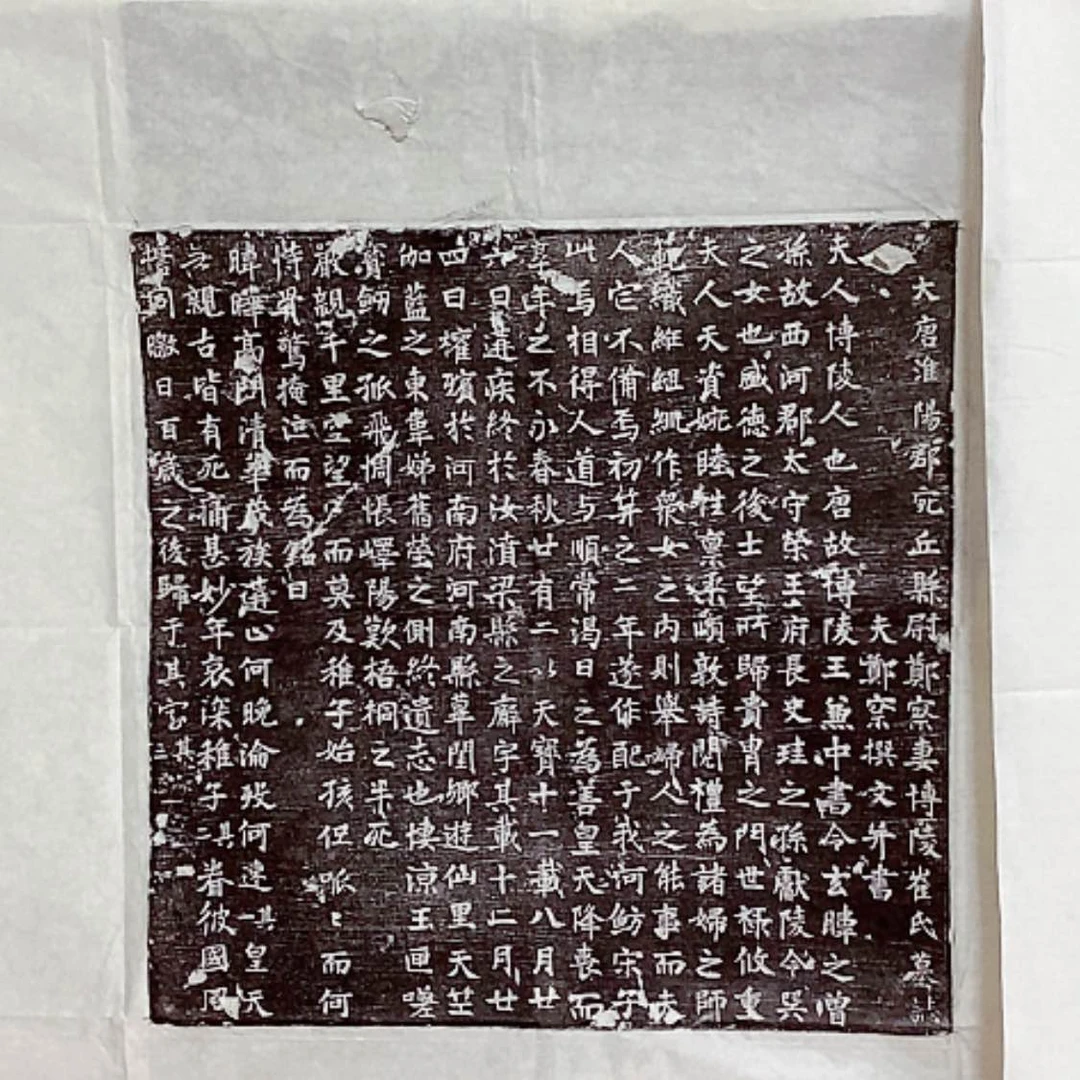 大唐淮陽郡宛丘縣尉鄭宲妻博陵崔氏墓誌
夫鄭宲撰文并書
夫人博陵人也唐故博陵王兼中書令玄暐之曾
孫故西河郡太守榮王府長史珪之孫獻陵令巽
之女也盛德之後士望所歸貴胄之門世祿攸重
夫人天資婉睦性稟柔順敦詩閱禮為諸婦之師
範織維組紃作眾女之内則舉婦人之能事而夫
人它不俻焉初笄之二年遂作配于我河魴宋子
此焉相得人道与順常渴日之為善皇天降喪而
享年之不永春秋廿有二以天寶十一載八月廿
六日遘疾終於汝濆梁縣之廨宇其載十二月廿
四日權殯於河南府河南縣平閏鄉遊仙里天竺
伽藍之東韋娣舊塋之側終遺志也悽涼玉匣嗟
寶鈿之孤飛惆悵嶧陽歎梧桐之半死
嚴親千里空望而莫及稚子始孩但呱〻而何
恃覺驚掩泣而為銘曰
暐曄高門清華茂族蓮山何晚淪歿何速其一皇天
無親古皆有死痛甚妙年哀深稚子其二眷彼國風
曒日百歲之後歸于其室其三